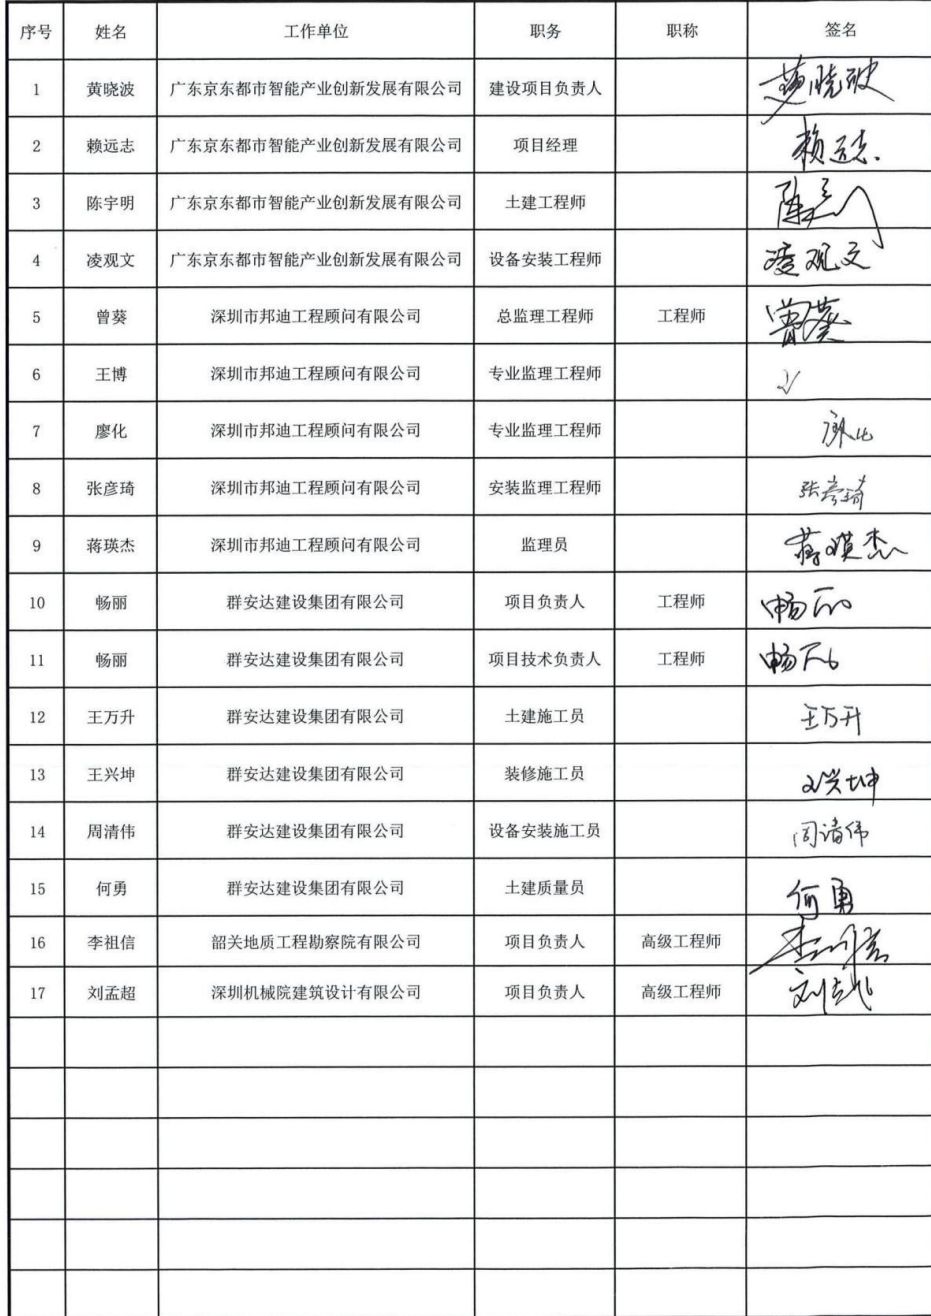 序号 姓名 工作单位 职务 职称 签名
1 黄晓波 广东京东都市智能产业创新发展有限公司 建设项目负责人 黄晓波
2 赖远志 广东京东都市智能产业创新发展有限公司 项目经理 赖远志
3 陈宇明 广东京东都市智能产业创新发展有限公司 土建工程师
4 凌观文 广东京东都市智能产业创新发展有限公司 设备安装工程师 凌观文
5 曾葵 深圳市邦迪工程顾问有限公司 总监理工程师 工程师 曾葵
6 王博 深圳市邦迪工程顾问有限公司 专业监理工程师
7 廖化 深圳市邦迪工程顾问有限公司 专业监理工程师 廖化
8 张彦琦 深圳市邦迪工程顾问有限公司 安装监理工程师 张彦琦
9 蒋瑛杰 深圳市邦迪工程顾问有限公司 监理员 蒋瑛杰
10 畅丽 群安达建设集团有限公司 项目负责人 工程师 畅丽
11 畅丽 群安达建设集团有限公司 项目技术负责人 工程师 畅丽
12 王万升 群安达建设集团有限公司 土建施工员 王万升
13 王兴坤 群安达建设集团有限公司 装修施工员 王兴坤
14 周清伟 群安达建设集团有限公司 设备安装施工员 周清伟
15 何勇 群安达建设集团有限公司 土建质量员 何勇
16 李祖信 韶关地质工程勘察院有限公司 项目负责人 高级工程师
17 刘孟超 深圳机械院建筑设计有限公司 项目负责人 高级工程师